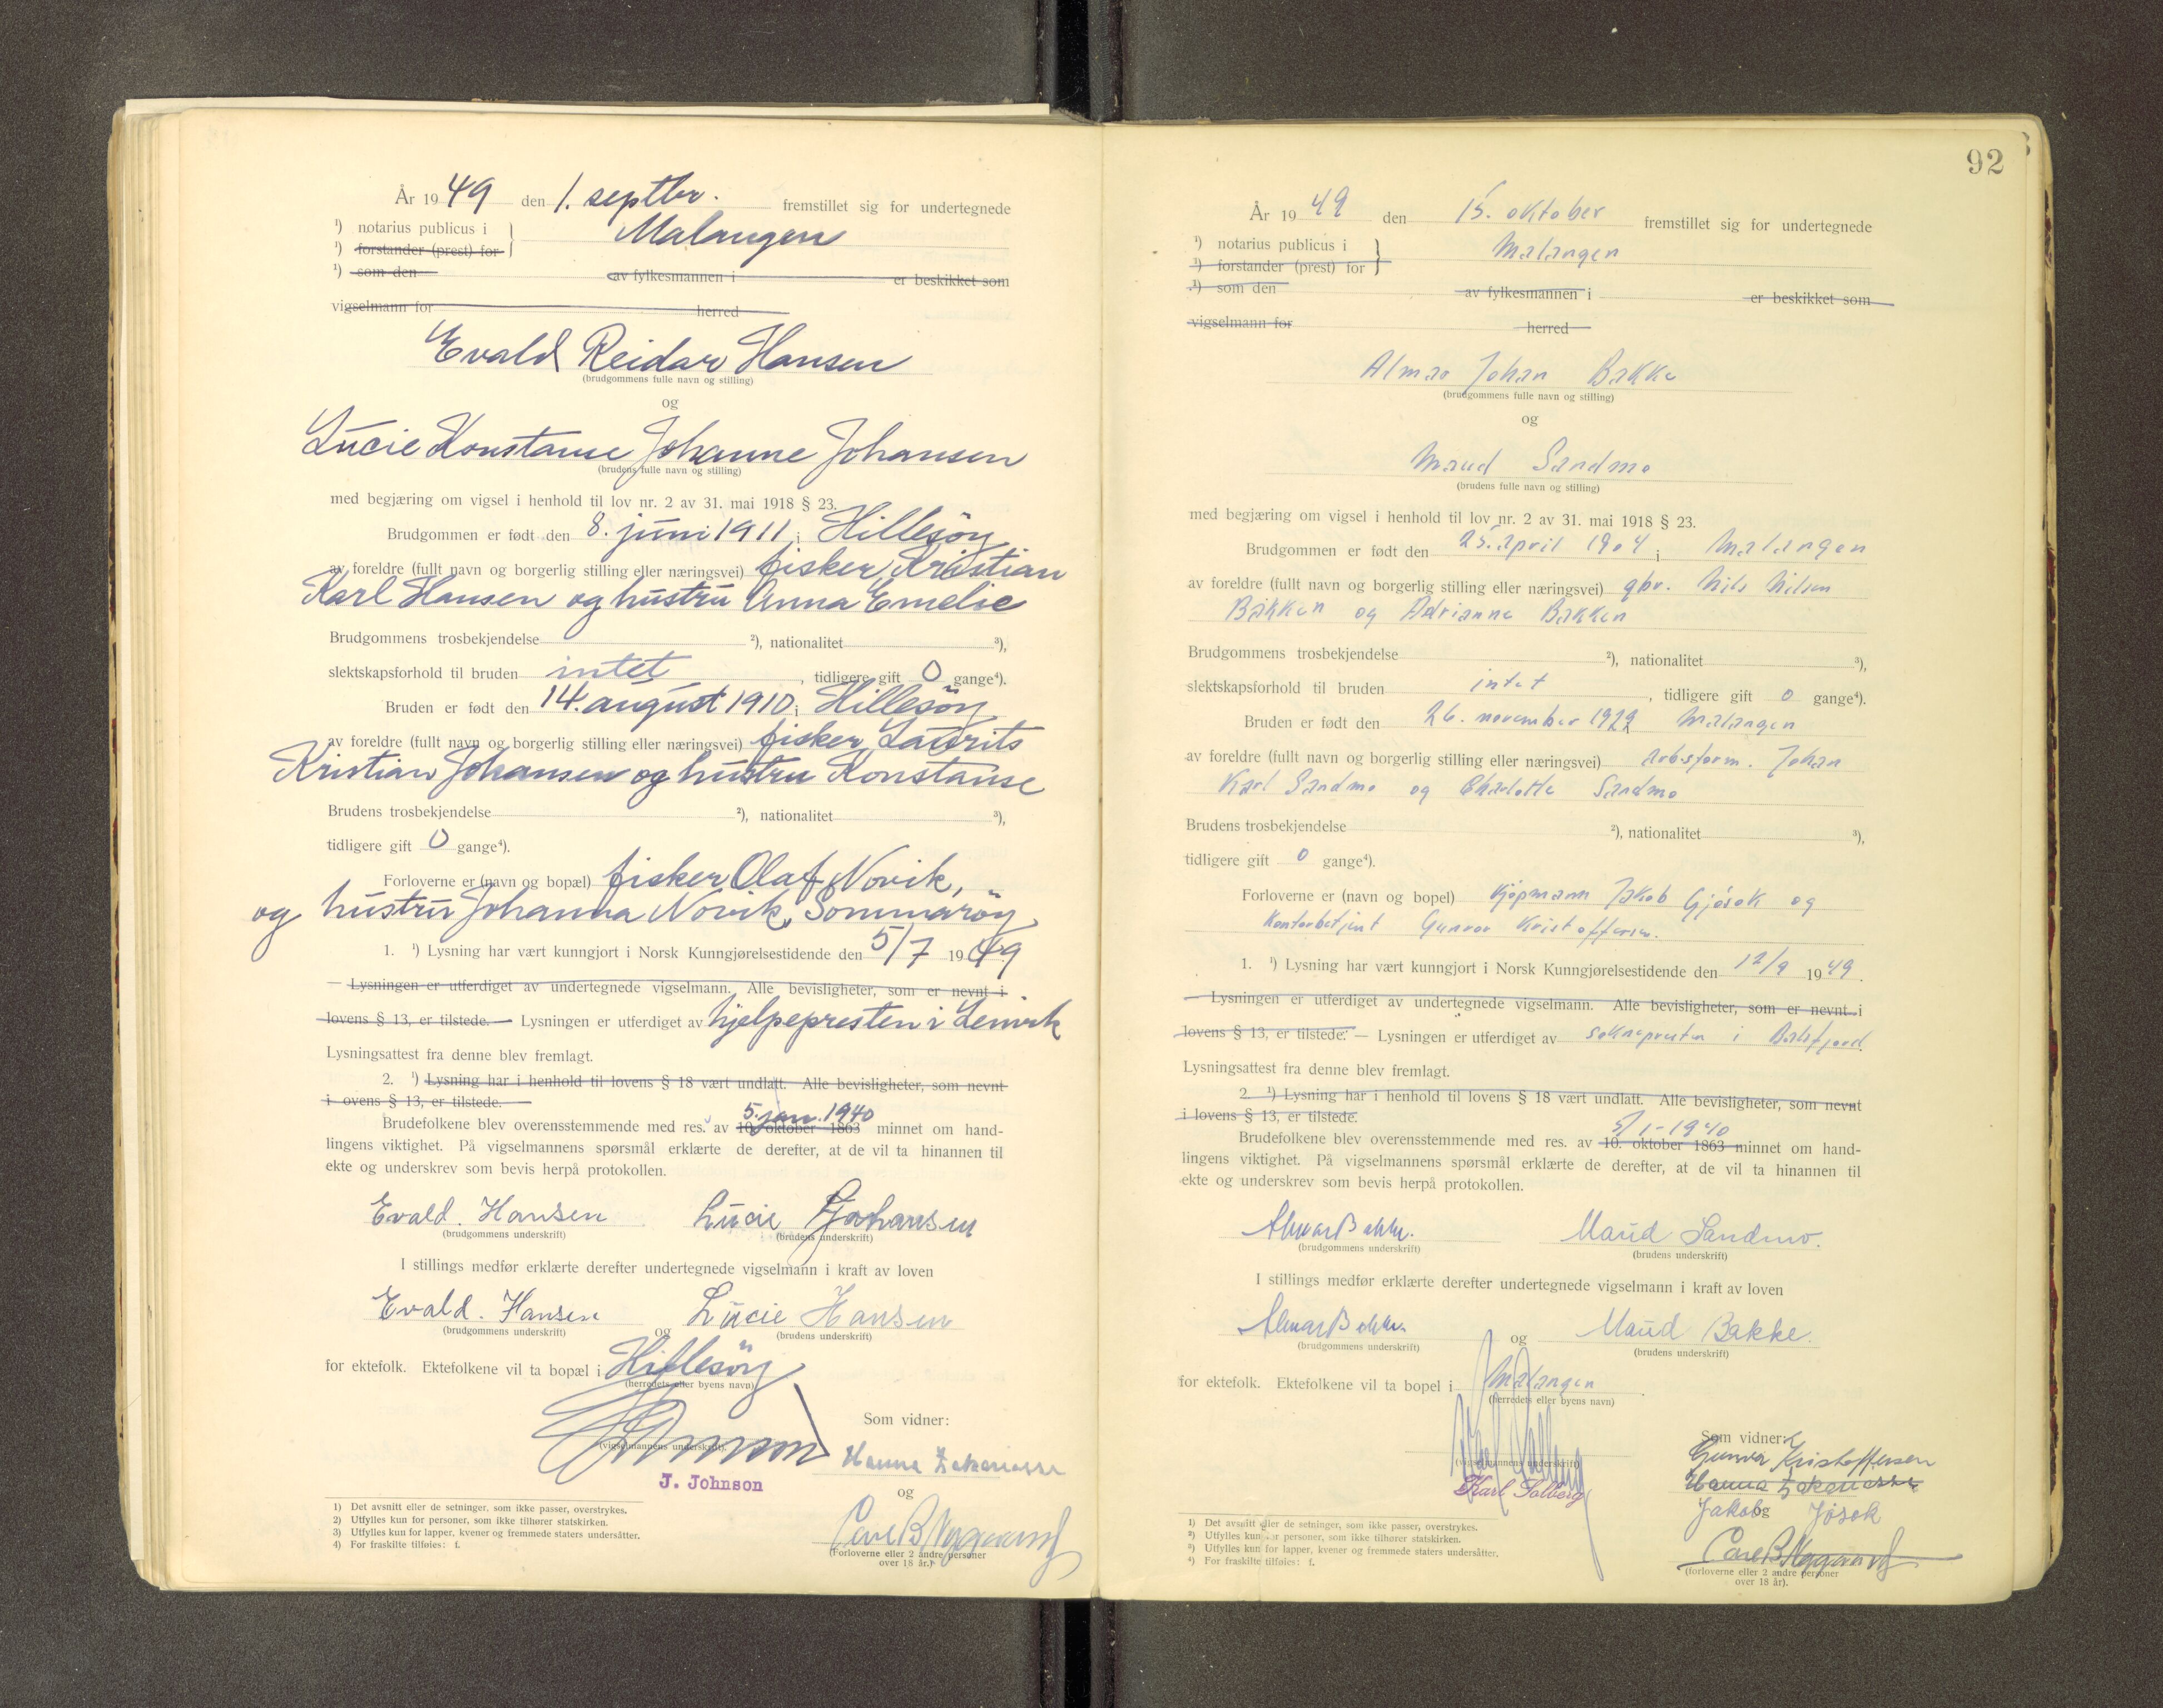 År 1949 den 1. septbr. fremstillet sig for undertegnede
¹) notarius publicus i } Malangen
¹) forstander (prest) for
¹) som den av fylkesmannen i er beskikket som
vigselmann for herred
Evald Reidar Hansen
(brudgommens fulle navn og stilling)
og
Lucie Konstanse Johanne Johansen
(brudens fulle navn og stilling)
med begjæring om vigsel i henhold til lov nr. 2 av 31. mai 1918 § 23.
Brudgommen er født den 8. juni 1911 i Hillesöy
av foreldre (fullt navn og borgerlig stilling eller næringsvei) fisker Kristian
Karl Hansen og hustru Anna Emelie
Brudgommens trosbekjendelse ²), nationalitet ³),
slektskapsforhold til bruden intet, tidligere gift 0 gange⁴).
Bruden er født den 14. august 1910 i Hillesöy
av foreldre (fullt navn og borgerlig stilling eller næringsvei) fisker Laurits
Kristian Johansen og hustru Konstanse
Brudens trosbekjendelse ²), nationalitet ³),
tidligere gift 0 gange⁴).
Forloverne er (navn og bopæl) fisker Olaf Novik,
og hustru Johanna Novik, Sommaröy
1. ¹) Lysning har vært kunngjort i Norsk Kunngjørelsestidende den 5/7 1949
— Lysningen er utferdiget av undertegnede vigselmann. Alle bevisligheter, som er nevnt i
lovens § 13, er tilstede. — Lysningen er utferdiget av hjelpepresten i Lenvik
Lysningsattest fra denne blev fremlagt.
2. ¹) Lysning har i henhold til lovens § 18 vært undlatt. Alle bevisligheter, som nevnt
i ovens § 13, er tilstede.
5. jan. 1940
Brudefolkene blev overensstemmende med res. av 10. oktober 1863 minnet om hand-
lingens viktighet. På vigselmannens spørsmål erklærte de derefter, at de vil ta hinannen til
ekte og underskrev som bevis herpå protokollen.
Evald. Hansen Lucie Johansen
(brudgommens underskrift) (brudens underskrift)
I stillings medfør erklærte derefter undertegnede vigselmann i kraft av loven
Evald. Hansen og Lucie Hansen
(brudgommens underskrift) (brudens underskrift)
for ektefolk. Ektefolkene vil ta bopæl i Hillesöy
(herredets eller byens navn)
Som vidner:
(vigselmannens underskrift).
Hanna Zakariasse
J. Johnson
og
1) Det avsnitt eller de setninger, som ikke passer, overstrykes.
2) Utfylles kun for personer, som ikke tilhører statskirken.
3) Utfylles kun for lapper, kvener og fremmede staters undersåtter.
4) For fraskilte tilføies: f.
(Forloverne eller 2 andre personer
over 18 år.)
92
År 1949 den 15. oktober fremstillet sig for undertegnede
¹) notarius publicus i } Malangen
¹) forstander (prest) for
¹) som den av fylkesmannen i er beskikket som
vigselmann for herred
Almar Johan Bakke
(brudgommens fulle navn og stilling)
og
Maud Sandmo
(brudens fulle navn og stilling)
med begjæring om vigsel i henhold til lov nr. 2 av 31. mai 1918 § 23.
Brudgommen er født den 25. april 1904 i Malangen
av foreldre (fullt navn og borgerlig stilling eller næringsvei) gbr. Nils Nilsen
Bakken og Adrianna Bakken
Brudgommens trosbekjendelse ²), nationalitet ³),
slektskapsforhold til bruden intet, tidligere gift 0 gange⁴).
Bruden er født den 26. november 1922 Malangen
av foreldre (fullt navn og borgerlig stilling eller næringsvei) arb.sform. Johan
Karl Sandmo og Charlotte Sandmo
Brudens trosbekjendelse ²), nationalitet ³),
tidligere gift 0 gange⁴).
Forloverne er (navn og bopel) kjøpmann Jakob Gjøsok og
kontorbetjent Gunvor Kristoffersen.
1. ¹) Lysning har vært kunngjort i Norsk Kunngjørelsestidende den 12/9 1949.
— Lysningen er utferdiget av undertegnede vigselmann. Alle bevisligheter, som er nevnt i
lovens § 13, er tilstede. — Lysningen er utferdiget av soknepresten i Balsfjord.
Lysningsattest fra denne blev fremlagt.
2. ¹) Lysning har i henhold til lovens § 18 vært undlatt. Alle bevisligheter, som nevnt
i lovens § 13, er tilstede.
5/1-1940
Brudefolkene blev overensstemmende med res. av 10. oktober 1863 minnet om hand-
lingens viktighet. På vigselmannens spørsmål erklærte de derefter, at de vil ta hinannen til
ekte og underskrev som bevis herpå protokollen.
Almar Bakke. Maud Sandmo.
(brudgommens underskrift) (brudens underskrift)
I stillings medfør erklærte derefter undertegnede vigselmann i kraft av loven
Almar Bakke. og Maud Bakke.
(brudgommens underskrift) (brudens underskrift)
for ektefolk. Ektefolkene vil ta bopel i Malangen
(herredets eller byens navn)
Som vidner:
Karl Solberg
(vigselmannens underskrift)
Karl Solberg
Gunvor Kristoffersen
Hanna Zakariasse
Jakob og Jøsok
1) Det avsnitt eller de setninger, som ikke passer, overstrykes.
²) Utfylles kun for personer, som ikke tilhører statskirken.
³) Utfylles kun for lapper, kvener og fremmede staters undersåtter.
⁴) For fraskilte tilføies: f.
(forloverne eller 2 andre personer
over 18 år).